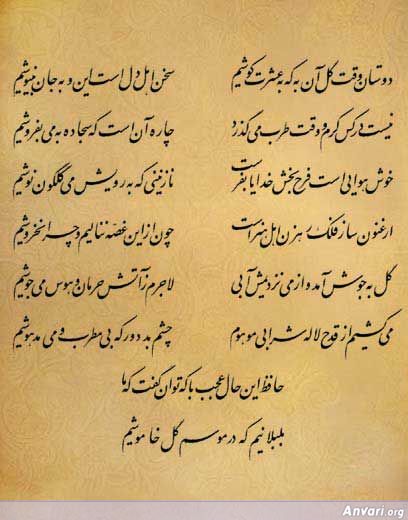 دوستان وقت گل آن به که به عشرت کوشیم
سخن اهل دل است این و به جان بنیوشیم
نیست در کس کرم و وقت طرب می گذرد
چاره آن است که سجاده به می بفروشیم
خوش هوایی است فرح بخش خدایا بفرست
نازنینی که به رویش می گلگون نوشیم
ارغنون ساز فلک رهزن اهل هنر است
چون از این غصه ننالیم و چرا نخروشیم
گل به جوش آمد و از می نزدیمش آبی
لاجرم ز آتش حرمان و هوس می جوشیم
می کشیم از قدح لاله شرابی موهوم
چشم بد دور که بی مطرب و می مدهوشیم
حافظ این حال عجب با که توان گفت که ما
بلبلانیم که در موسم گل خاموشیم
Anvari.org